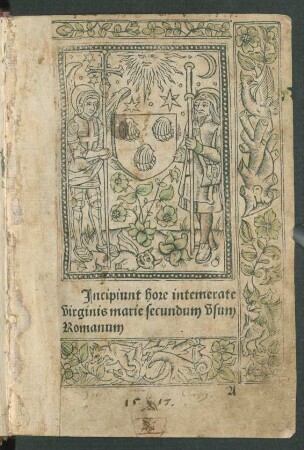 Incipiunt hore intemerate
virginis marie secundum vsum
Romanum
A
1517.